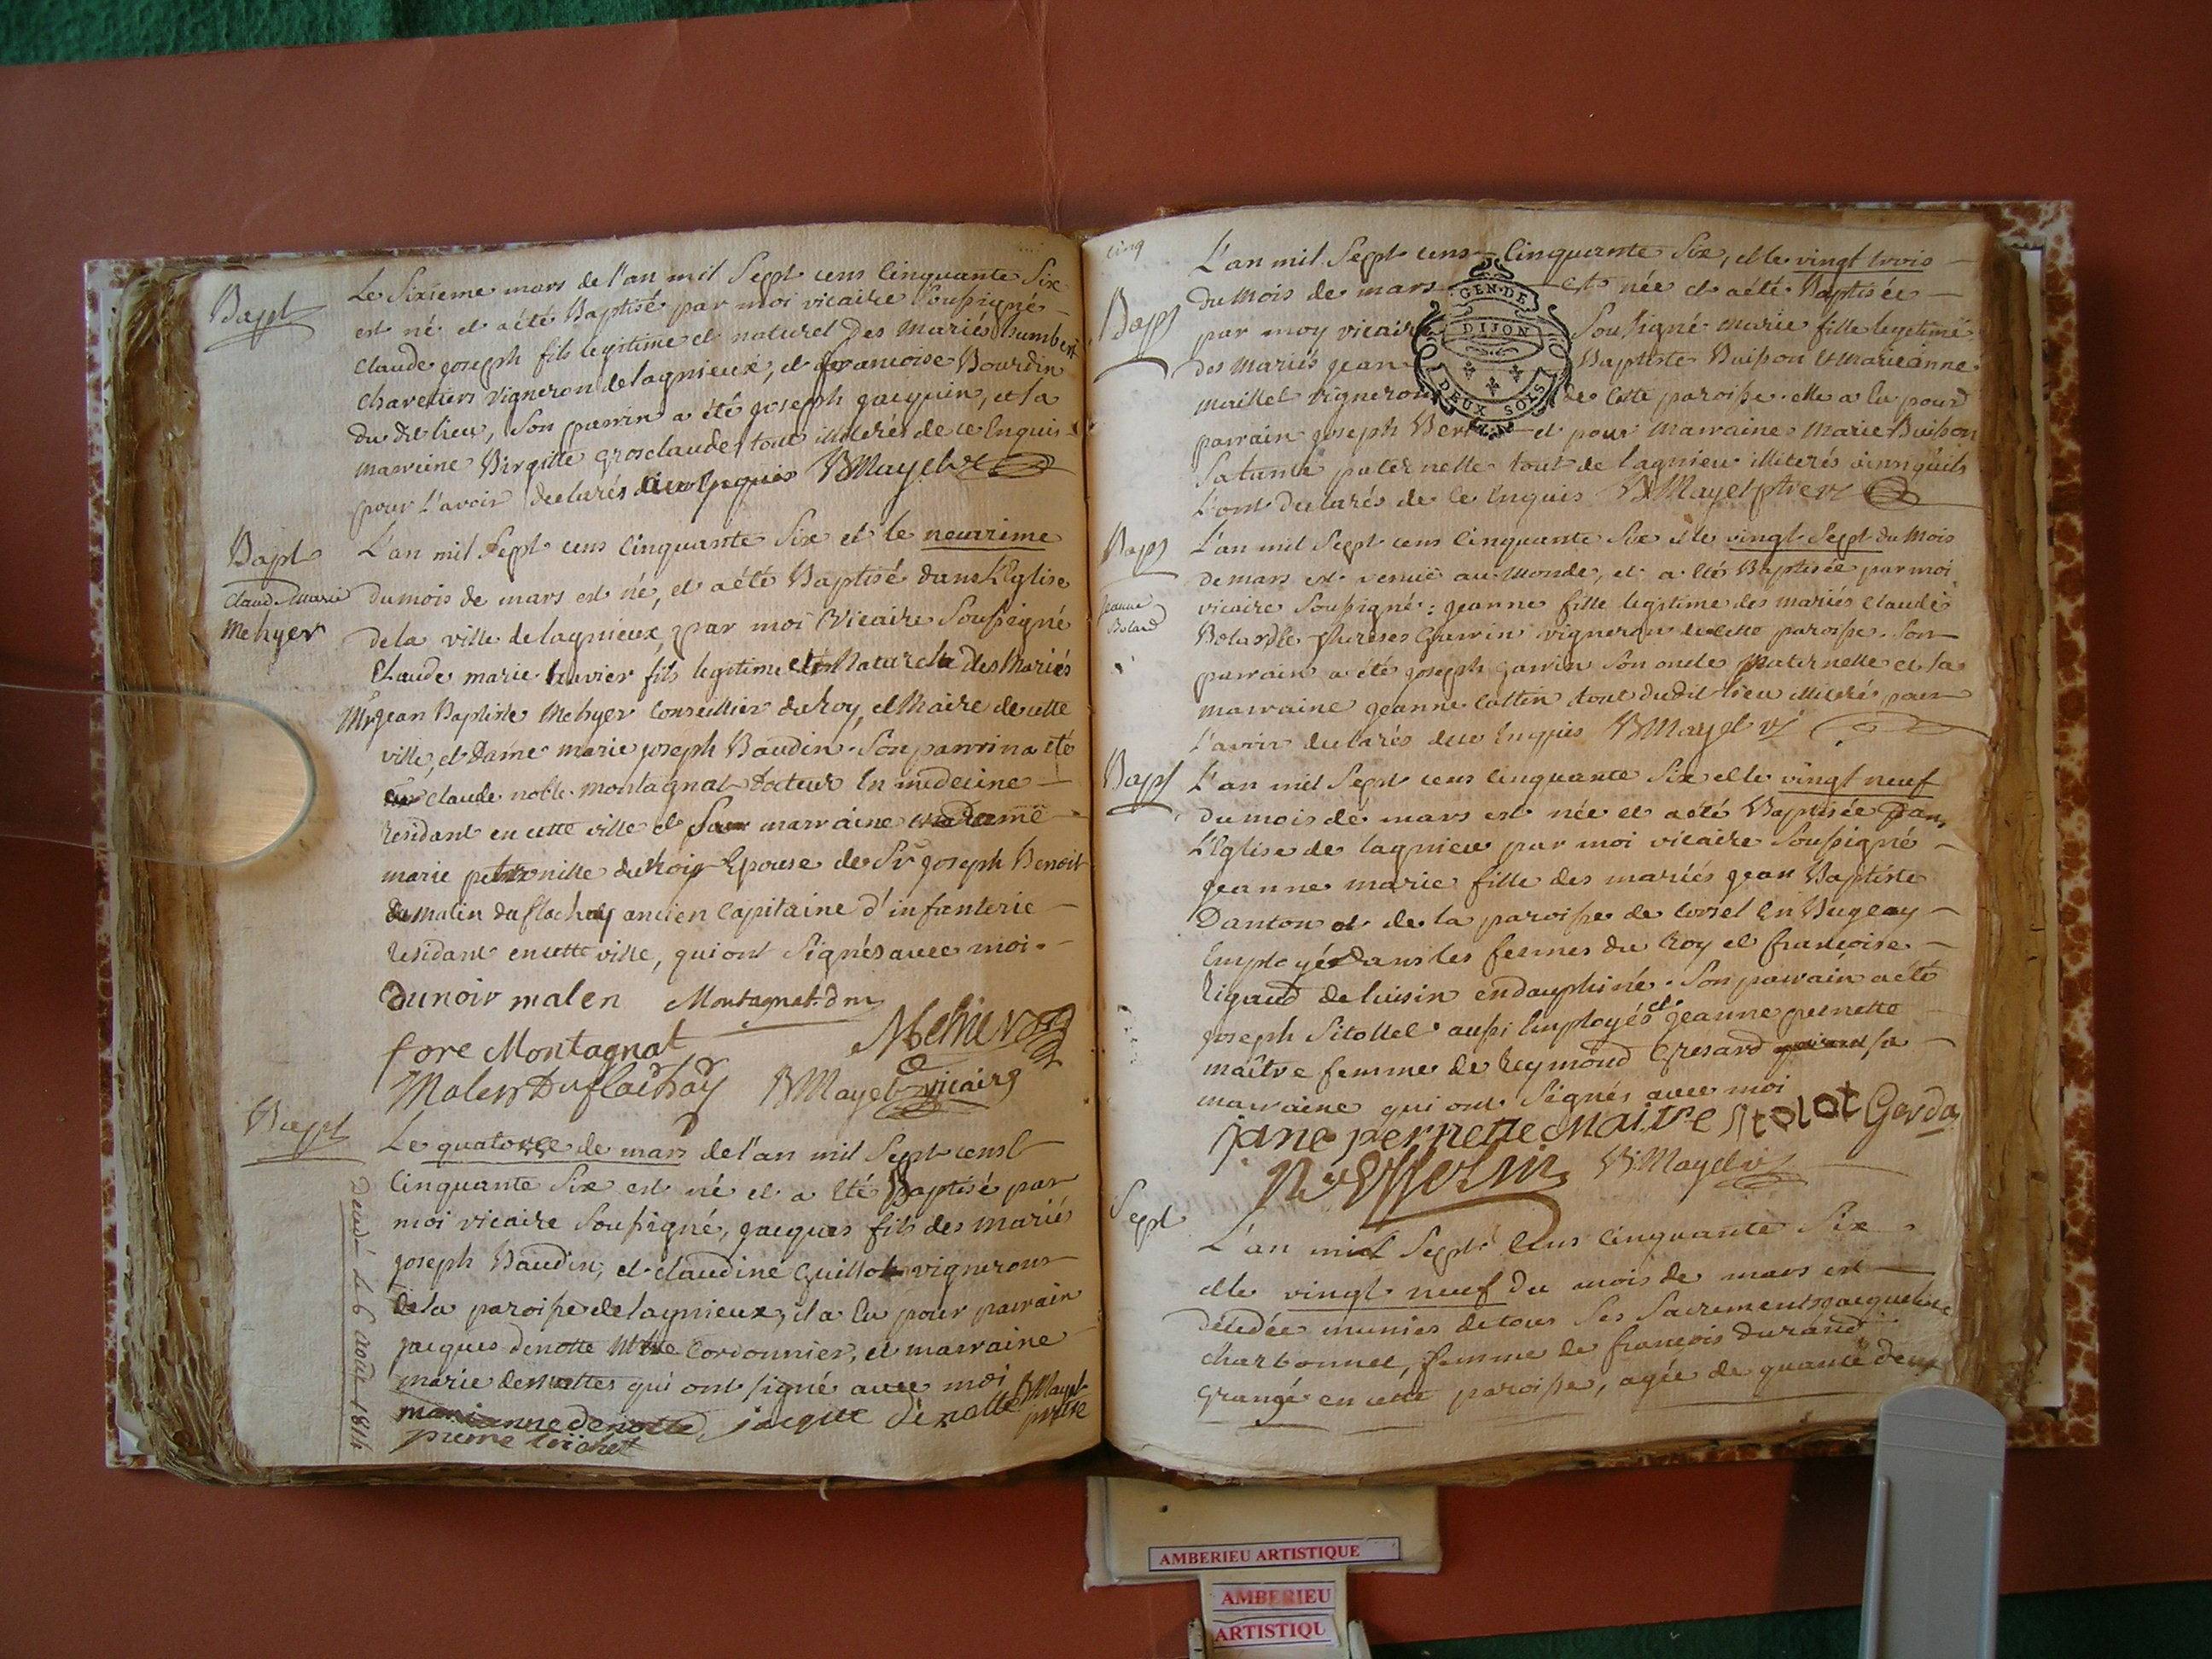 Bapt
Le Sixieme mars de l'an mil Sept cens Cinquante Six
est né et a été Baptisé par moi vicaire Soussigné
Claude joseph fils legitime et naturel Des Mariés humbert
vigneron de lagnieux, et francoise Bourdin
du dit lieu, Son parrin a été joseph jacquin, et la
marreine Birgitte grosclaude tout illiterés de ce Enquis
pour l'avoir declarés BMayet
Bapt
Claude Marie
Mehyer
L'an mil Sept cens Cinquante Six et le neuvieme
du mois de mars est né, et a été Baptisé dans l'Eglise
de la ville de lagnieux, par moi Vicaire Soussigné
Claude marie fils legitime et Naturel des Mariés
Mr jean Baptiste Mehyer Conseillier du Roy, et Maire de cette
ville, et Dame marie joseph Baudin. Son parrin a été
claude noble montagnat Docteur En medecine
residant en cette ville et marraine Dame
marie Epouse de Sr joseph Benoit
malin duflachay ancien Capitaine d'infanterie
residant en cette ville, qui ont Signés avec moi.
dunoir malen Montagnat dm
fore Montagnat
Malen Duflachay BMayet vicaire
Bapt
Le quatorze de mars de l'an mil Sept cens
Cinquante Six est né et a Eté Baptisé par
moi vicaire Soussigné, jacques fils des mariés
joseph Baudin, et claudine Guillot vignerons
de la paroisse de lagnieux, il a Eu pour parrain
jacques denotte Cordonnier, et marraine
marie qui ont signé avec moi BMayet
marianne denotte, jacque denotte
pierre
decedé le 6 aout 1814
cinq
Bapt
L'an mil Sept cens Cinquante Six, et le vingt trois
du Mois de mars est née et a été Baptisée
par moy vicaire Soussigné marie fille legitime
des Mariés jean Baptiste Buisson et marieanne
maillet vigneron de Cette paroisse. elle a Eu pour
parrain joseph et pour marraine Marie Buisson
Sa tante paternelle tout de lagnieu illiterés ainsi qu'ils
L'ont declarés de ce Enquis BMayet ptre v
GEN. DE
DIJON
DEUX SOLS
Bapt
Jeanne
Bolard
L'an mil Sept cens Cinquante Six et le vingt Sept du Mois
de mars est venuë au Monde, et a Eté Baptisée par moi
vicaire Soussigné: jeanne fille legitime des mariés Claude
Bolard et vigneron de cette paroisse. Son
parrain a été joseph garrin Son oncle paternelle et sa
marraine jeanne Cottin tout dudit lieu illiterés pour
l'avoir declarés de ce Enquis BMayet v
Bapt
L'an mil Sept cens Cinquante Six et le vingt neuf
du mois de mars est née et a été Baptisée dans
l'Eglise de lagnieu par moi vicaire Soussigné
jeanne marie fille des mariés jean Baptiste
Danton de la paroisse de En Bugeay
Employé dans les fermes du Roy et francoise
Rigaud de luisin en dauphiné. Son parrain a été
joseph Sitollet aussi Employés et jeanne pernette
maitre femme de Reymond Gresard sa
marraine qui ont Signés avec moi
jane pernette Maitre Sitolot
BMayet v
Sept
L'an mil Sept Cens Cinquante Six
et le vingt neuf Du mois de mars est
décedée munies de tous Ses Sacrements jacqueline
Charbonnet, femme de francois durand
Granger en cette paroisse, agée de
AMBERIEU ARTISTIQUE
AMBERIEU
ARTISTIQU